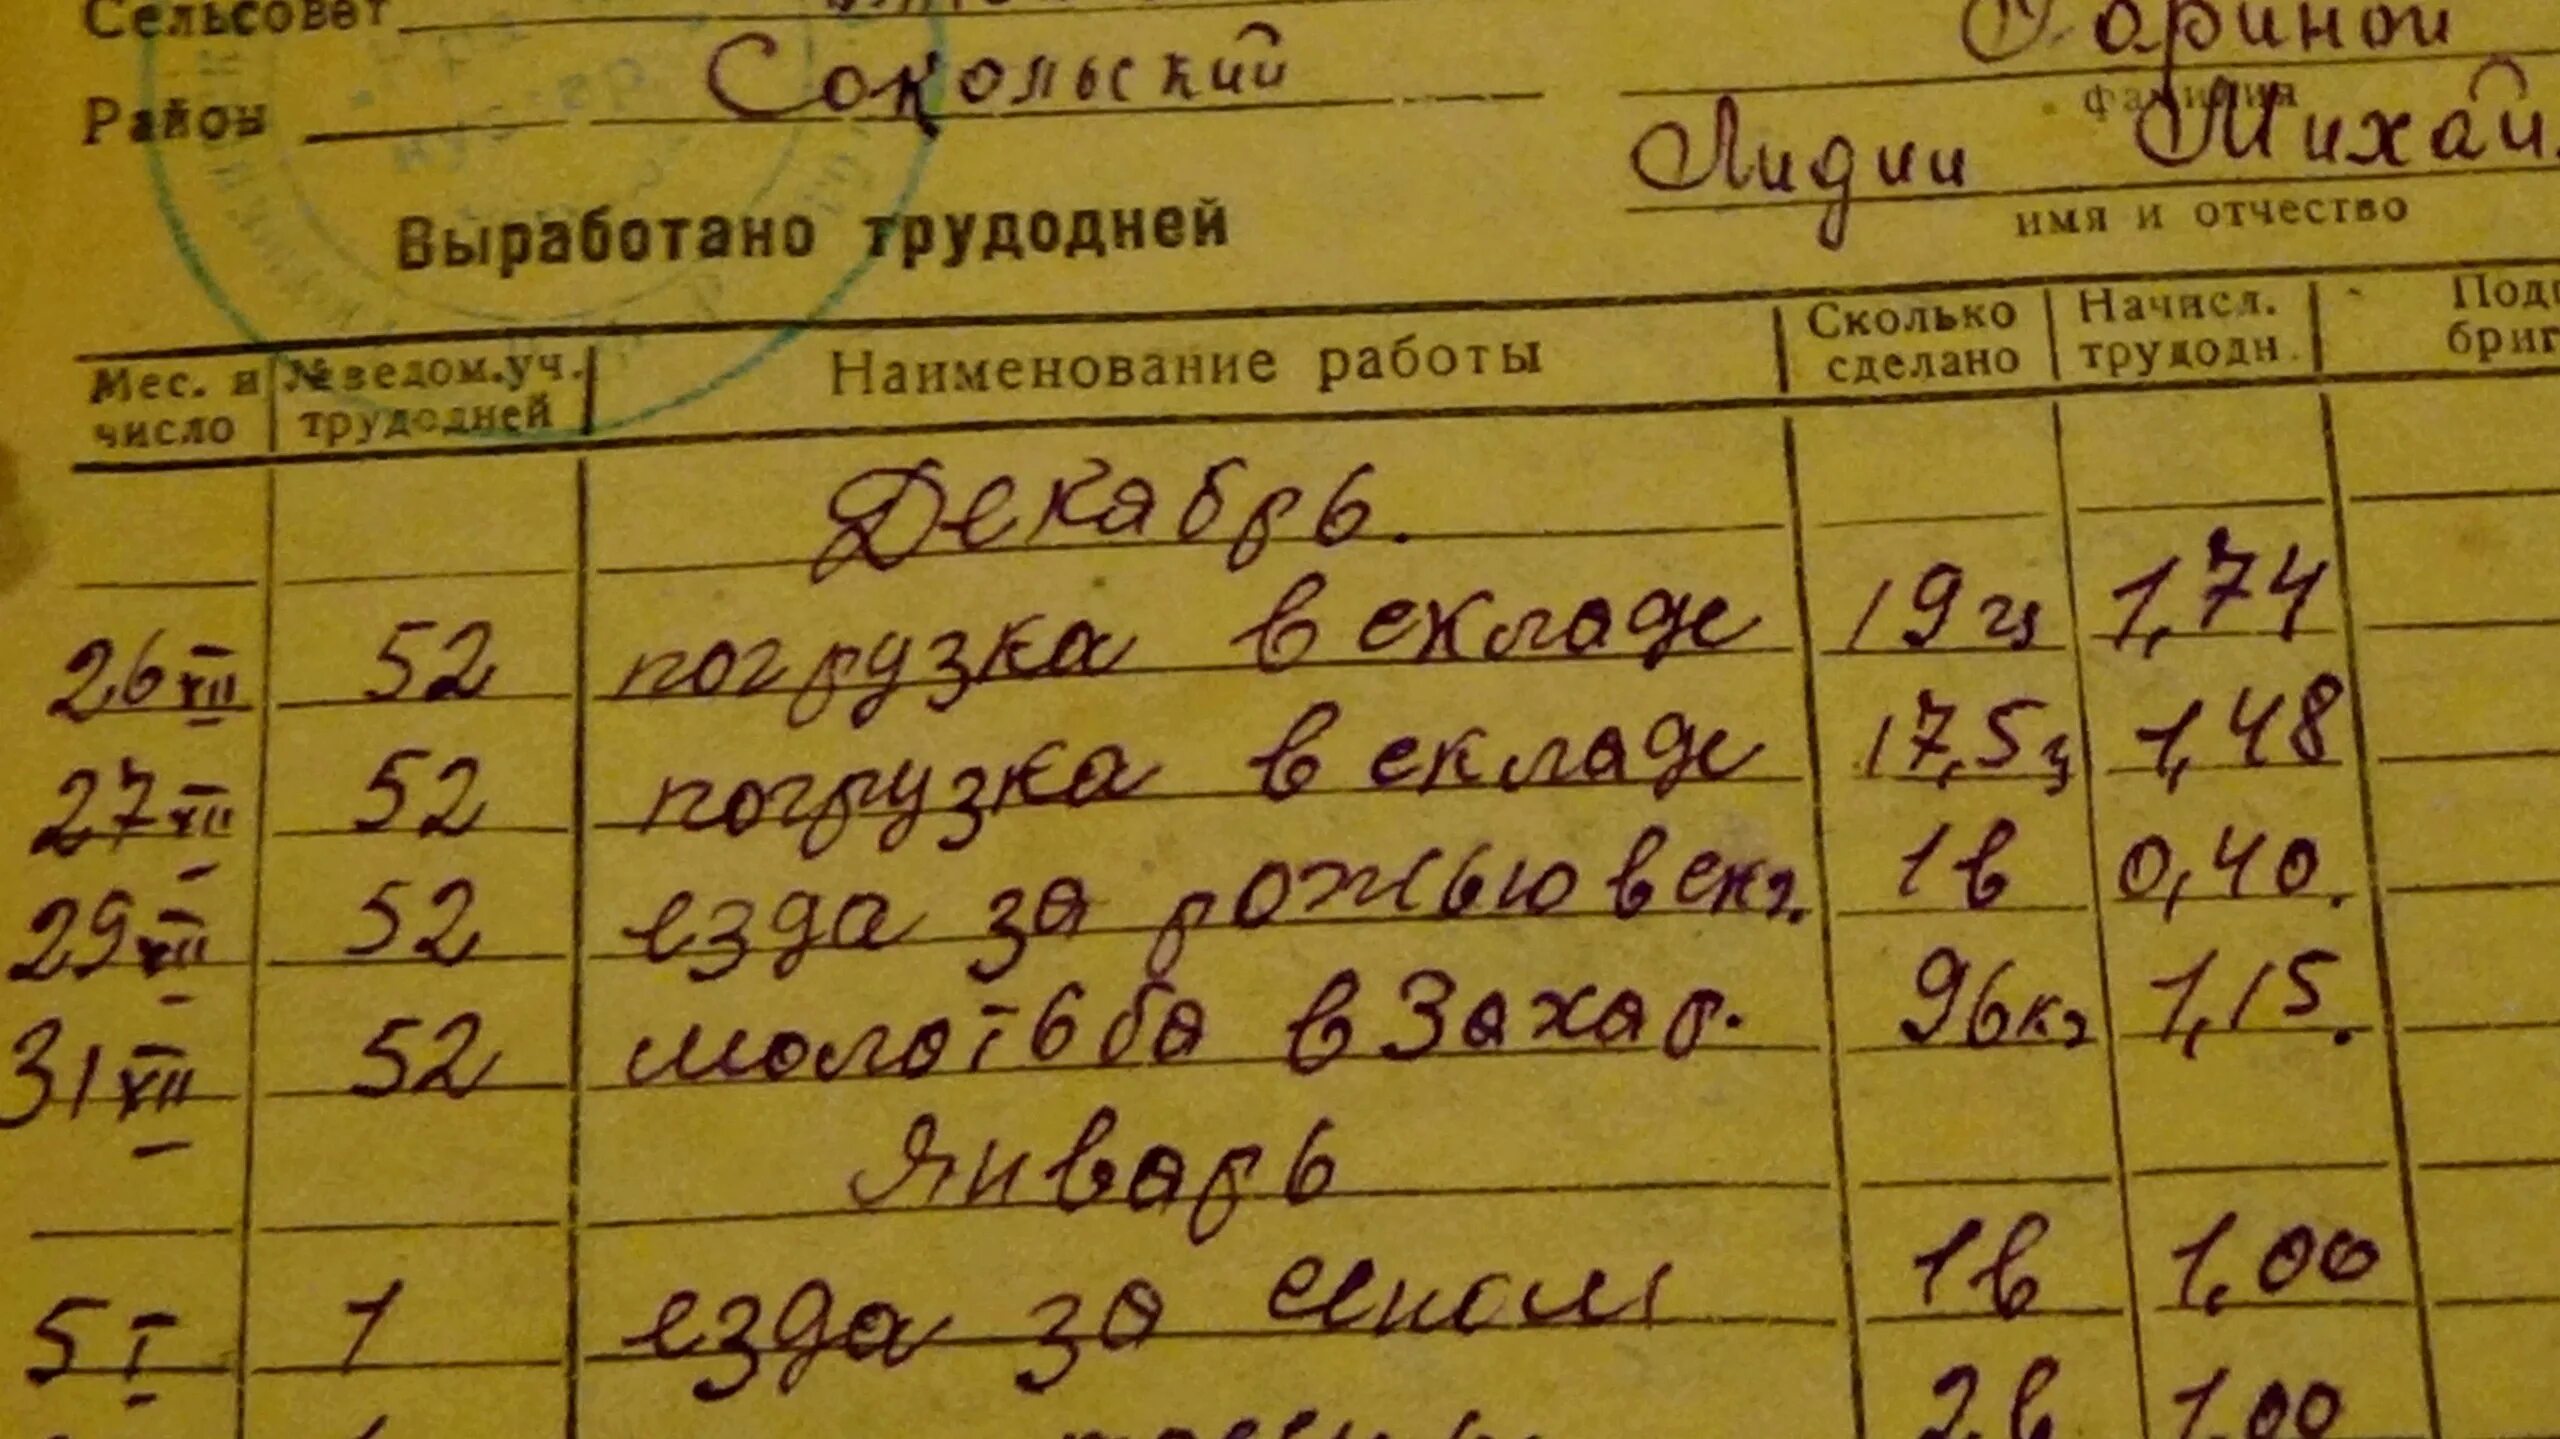 Сельсовет
Район Сокольский
фамилия
Лидии Михай.
имя и отчество
Выработано трудодней
Мес. и число №ведом.уч. трудодней Наименование работы Сколько сделано Начисл. трудодн.
Декабрь.
26 XII 52 погрузка в складе 19 ц 1,74
27 XII 52 погрузка в складе 17,5 ц 1,48
29 XII 52 езда за рожью в скл. 1 в 0,40.
31 XII 52 молотьба в Захар. 96 кг 1,15.
Январь
5 I 1 езда за сеном 1 в 1,00
2 в 1,00